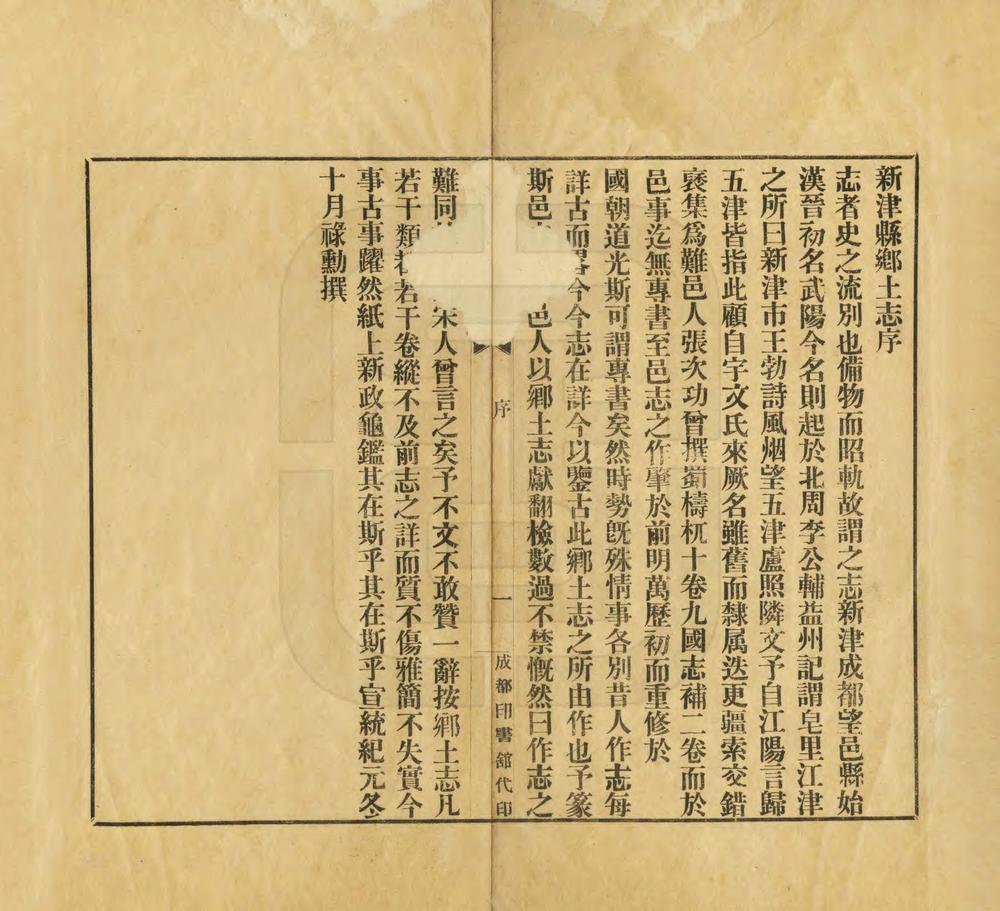 新津縣鄕土志序
志者史之流別也備物而昭軌故謂之志新津成都望邑縣始
漢晉初名武陽今名則起於北周李公輔益州記謂皂里江津
之所曰新津市王勃詩風烟望五津盧照隣文予自江陽言歸
五津皆指此顧自宇文氏來厥名雖舊而隸属迭更疆索交錯
裒集爲難邑人張次功曾撰蜀檮杌十卷九國志補二卷而於
邑事迄無專書至邑志之作肇於前明萬歷初而重修於
國朝道光斯可謂專書矣然時勢旣殊情事各別昔人作志每
詳古而畧今今志在詳今以鑒古此鄕土志之所由作也予篆
斯邑 邑人以鄕土志獻翻檢數過不禁慨然曰作志之
序
一
成都印書舘代印
難同 宋人曾言之矣予不文不敢贊一辭按鄕土志凡
若干類 若干卷縱不及前志之詳而質不傷雅簡不失實今
事古事躍然紙上新政龜鑑其在斯乎其在斯乎宣統紀元冬
十月祿勳撰